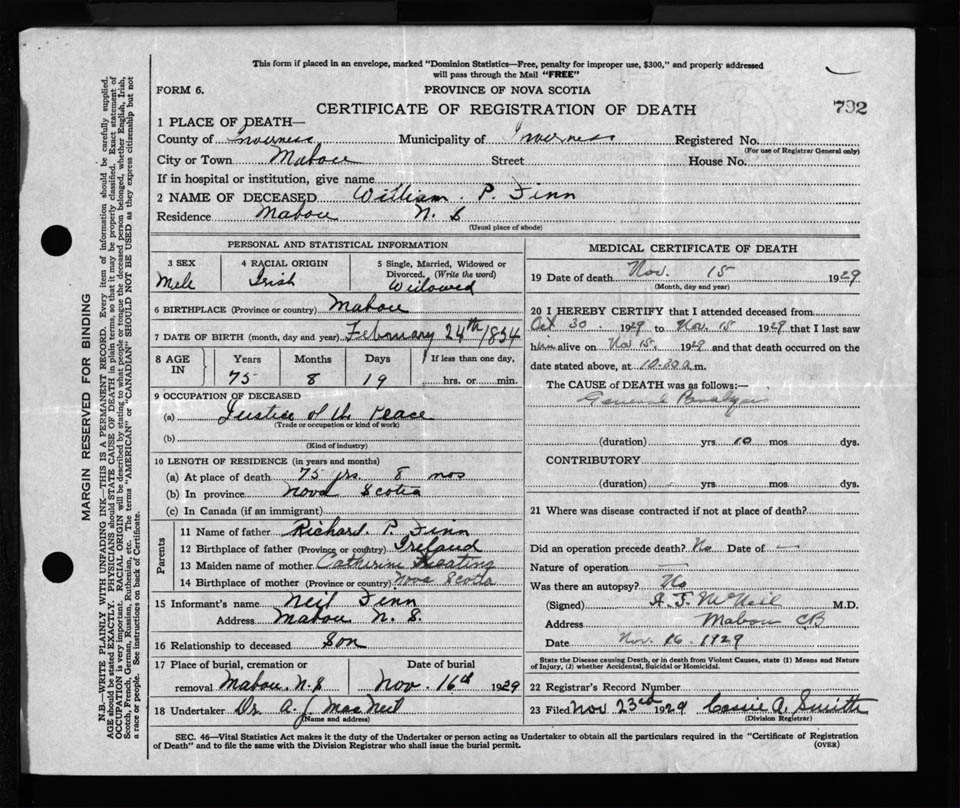 This form if placed in an envelope, marked "Dominion Statistics—Free, penalty for improper use, $300," and properly addressed
will pass through the Mail "FREE"
FORM 6. PROVINCE OF NOVA SCOTIA
CERTIFICATE OF REGISTRATION OF DEATH 792
1 PLACE OF DEATH—
County of Inverness Municipality of Inverness Registered No.
(For use of Registrar General only)
City or Town Mabou Street House No.
If in hospital or institution, give name
2 NAME OF DECEASED William P. Finn
Residence Mabou N. S
(Usual place of abode)
PERSONAL AND STATISTICAL INFORMATION
3 SEX 4 RACIAL ORIGIN 5 Single, Married, Widowed or
Divorced. (Write the word)
Male Irish Widowed
6 BIRTHPLACE (Province or country) Mabou
7 DATE OF BIRTH (month, day and year) February 24th 1854
8 AGE IN Years Months Days If less than one day,
75 8 19 hrs. or min.
9 OCCUPATION OF DECEASED
(a) Justice of the Peace
(Trade or occupation or kind of work)
(b)
(Kind of industry)
10 LENGTH OF RESIDENCE (in years and months)
(a) At place of death 75 yrs. 8 mos
(b) In province Nova Scotia
(c) In Canada (if an immigrant)
Parents
11 Name of father Richard. P. Finn
12 Birthplace of father (Province or country) Ireland
13 Maiden name of mother Catherine Keating
14 Birthplace of mother (Province or country) Nova Scotia
15 Informant's name Neil Finn
Address Mabou N. S.
16 Relationship to deceased Son
17 Place of burial, cremation or Date of burial
removal Mabou. N.S Nov. 16th 1929
18 Undertaker Dr. A. J MacNeil
(Name and address)
MEDICAL CERTIFICATE OF DEATH
19 Date of death Nov. 15 1929
(Month, day and year)
20 I HEREBY CERTIFY that I attended deceased from
Oct 30. 1929 to Nov. 15 1929 that I last saw
him alive on Nov 15. 1929 and that death occurred on the
date stated above, at 10.30 a.m.
The CAUSE of DEATH was as follows:—
General Paralysis
(duration) yrs 10 mos dys.
CONTRIBUTORY
(duration) yrs mos dys.
21 Where was disease contracted if not at place of death?
Did an operation precede death? No Date of —
Nature of operation —
Was there an autopsy? No
(Signed) A. J. McNeil M.D.
Address Mabou CB
Date Nov. 16. 1929
State the Disease causing Death, or in death from Violent Causes, state (1) Means and Nature
of Injury, (2) whether Accidental, Suicidal or Homicidal.
22 Registrar's Record Number
23 Filed Nov 23rd 1929 Cassie A. Smith
(Division Registrar)
SEC. 46—Vital Statistics Act makes it the duty of the Undertaker or person acting as Undertaker to obtain all the particulars required in the "Certificate of Registration
of Death" and to file the same with the Division Registrar who shall issue the burial permit. (OVER)
MARGIN RESERVED FOR BINDING
N.B.—WRITE PLAINLY WITH UNFADING INK—THIS IS A PERMANENT RECORD. Every item of information should be carefully supplied.
AGE should be stated EXACTLY. PHYSICIANS should STATE CAUSE OF DEATH in plain terms, so that it may be properly classified. Exact statement of
OCCUPATION is very important. RACIAL ORIGIN will be described by stating to what people or tongue the deceased person belonged, whether English, Irish,
Scotch, French, German, Russian, Ruthenian, etc. The terms "AMERICAN" or "CANADIAN" SHOULD NOT BE USED as they express citizenship but not
a race or people. See instructions on back of Certificate.